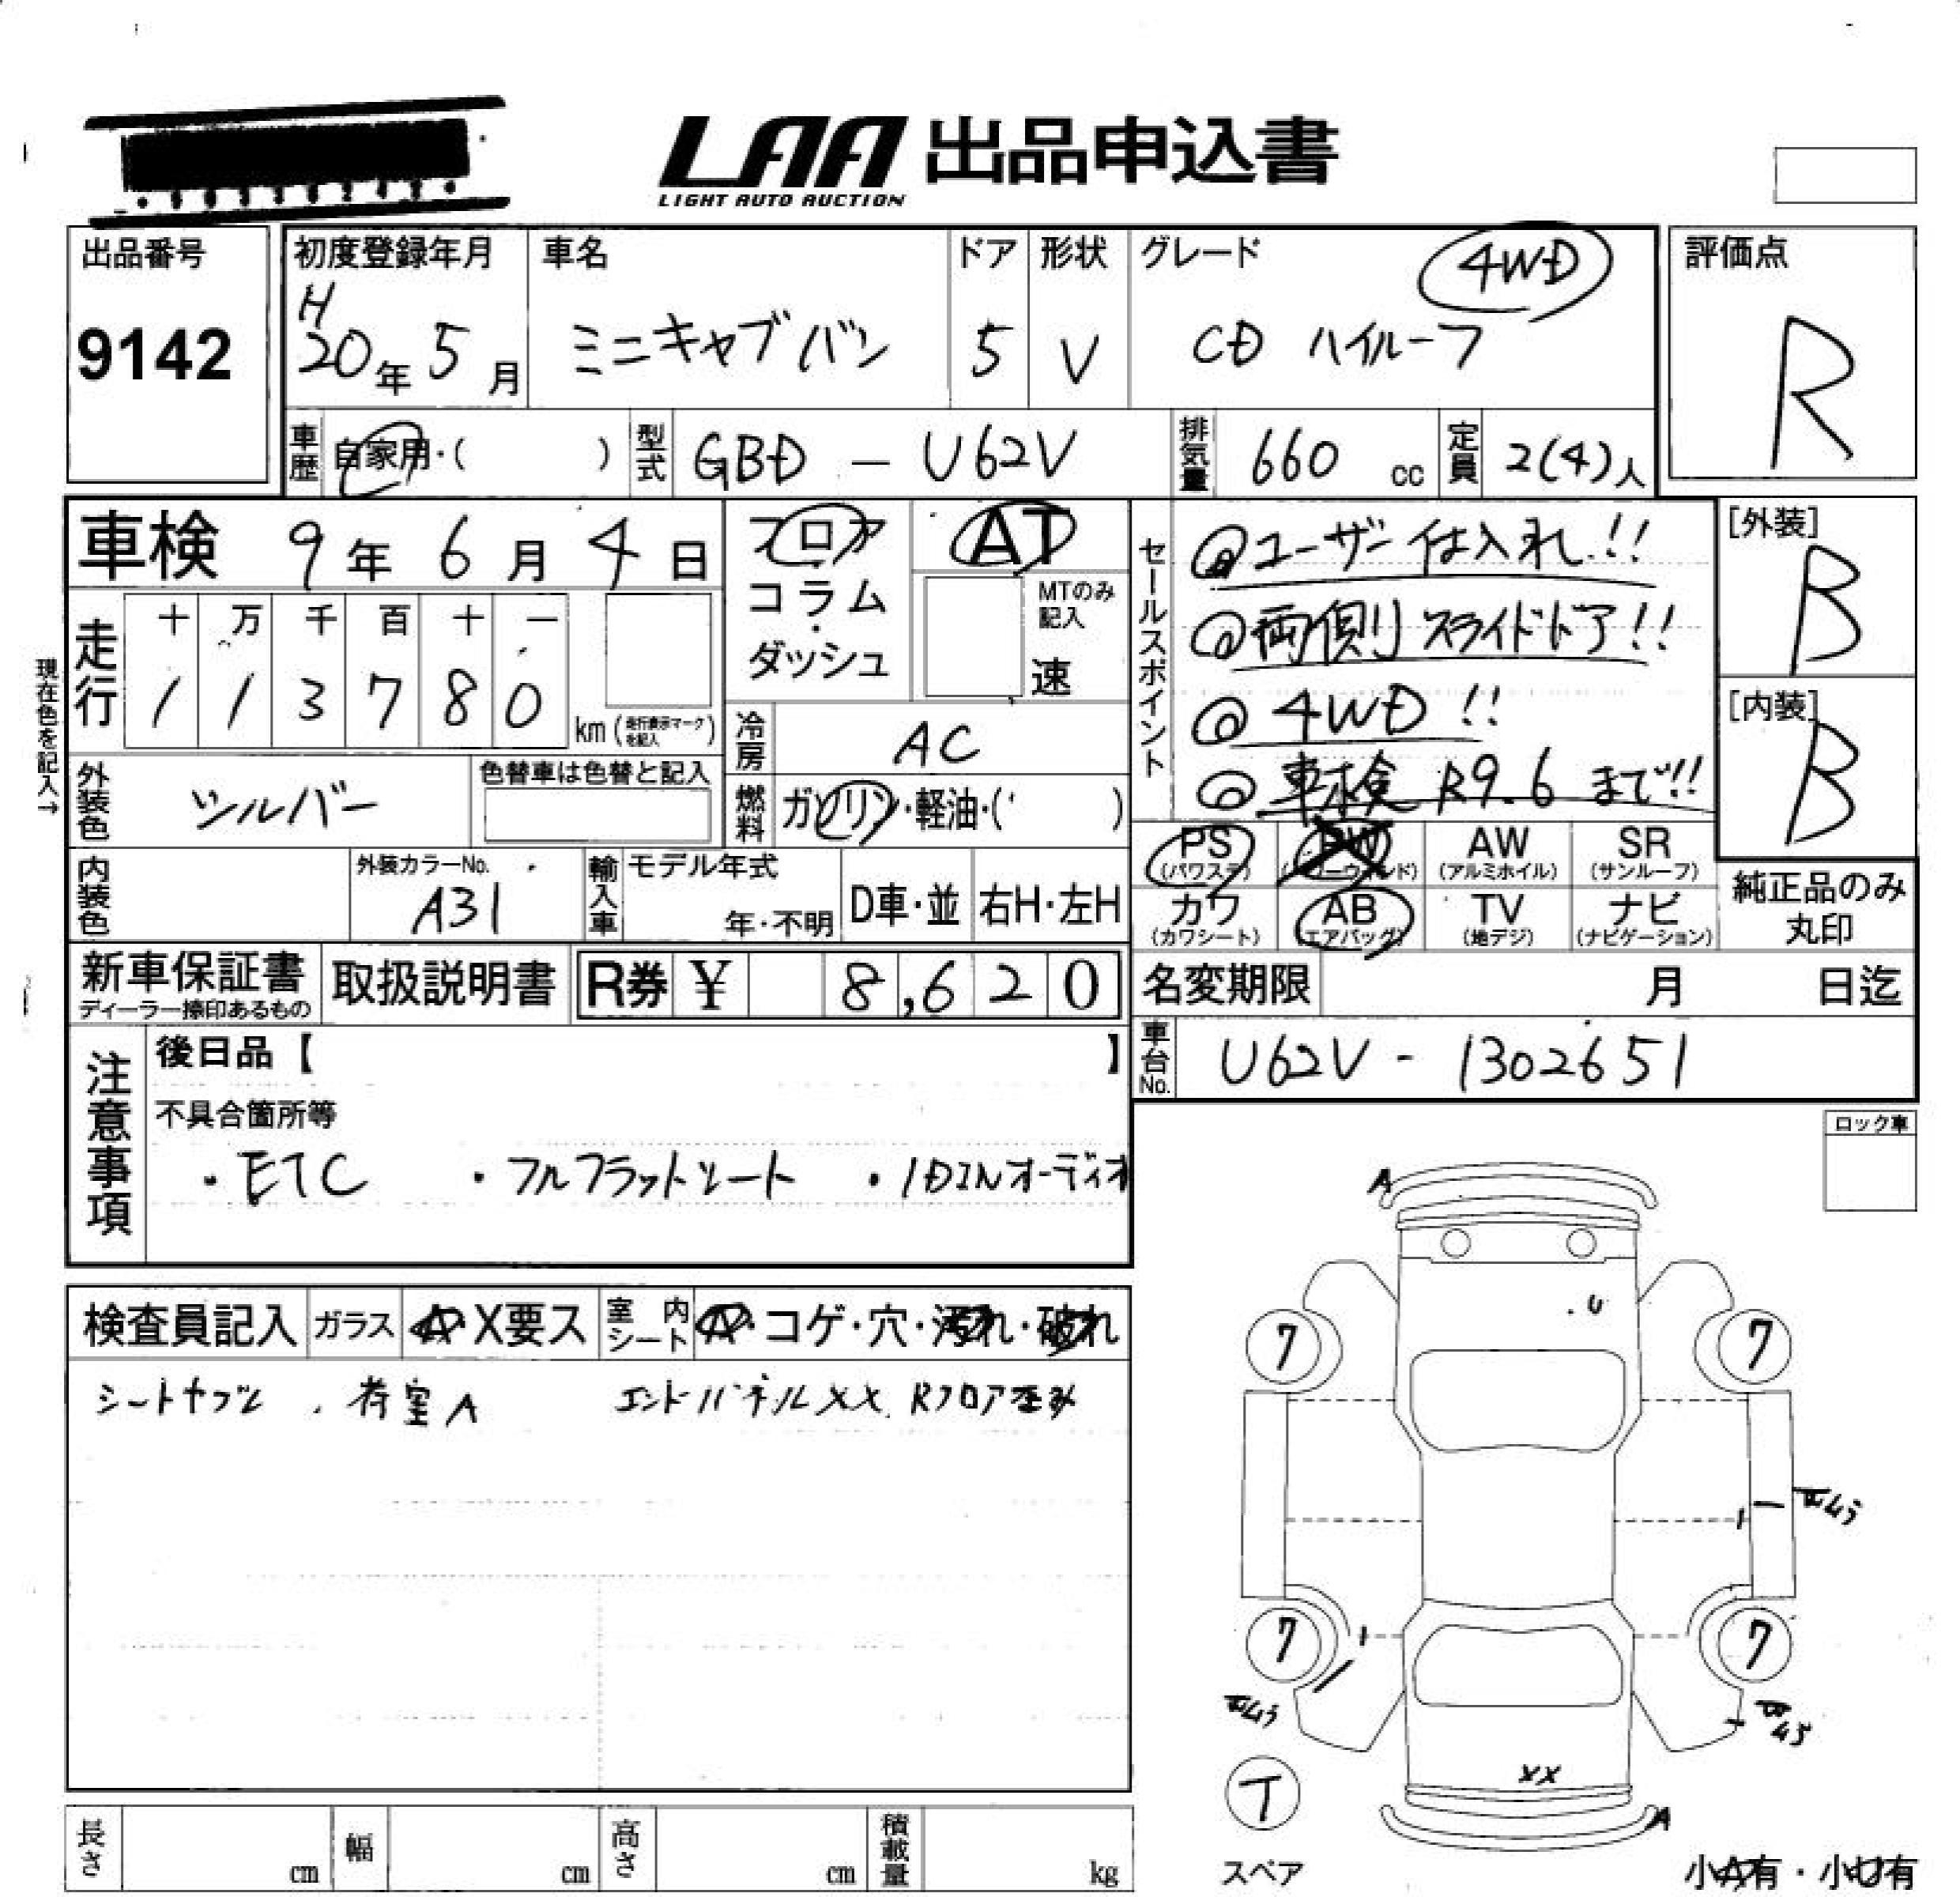 LAA 出品申込書
LIGHT AUTO AUCTION
出品番号
9142
初度登録年月
H
20年 5月
車名
ミニキャブバン
ドア
5
形状
V
グレード
4WD
CD ハイルーフ
評価点
R
車歴 自家用・( )
型式 GBD - U62V
排気量 660 cc
定員 2(4)人
車検 9年 6月 4日
フロア
コラム
・
ダッシュ
AT
MTのみ
記入
速
セールスポイント
@ユーザー仕入れ!!
@両側スライドドア!!
@4WD!!
@車検 R9.6 まで!!
[外装]
B
[内装]
B
現在色を記入→
走行
十 万 千 百 十 一
1 1 3 7 8 0
km (走行表示マークを記入)
冷房 AC
外装色 シルバー
色替車は色替と記入
燃料 ガソリン・軽油・( )
PS (パワステ)
PW (パワーウィンド)
AW (アルミホイル)
SR (サンルーフ)
カワ (カワシート)
AB (エアバッグ)
TV (地デジ)
ナビ (ナビゲーション)
純正品のみ
丸印
内装色
外装カラーNo.
A31
輸入車
モデル年式
年・不明
D車・並
右H・左H
新車保証書
ディーラー捺印あるもの
取扱説明書
R券 ¥ 8,620
名変期限 月 日迄
車台No. U62V - 1302651
注意事項
後日品【 】
不具合箇所等
・ETC ・フルフラットシート ・1DINオーディオ
ロック車
検査員記入
ガラス A・X要ス
室内シート A・コゲ・穴・汚れ・破れ
シートヤブレ、荷室A エンドパネルXX、Rフロア歪み
A
U
7
7
7
7
XX
A
T
スペア
小A有・小U有
長さ cm
幅 cm
高さ cm
積載量 kg